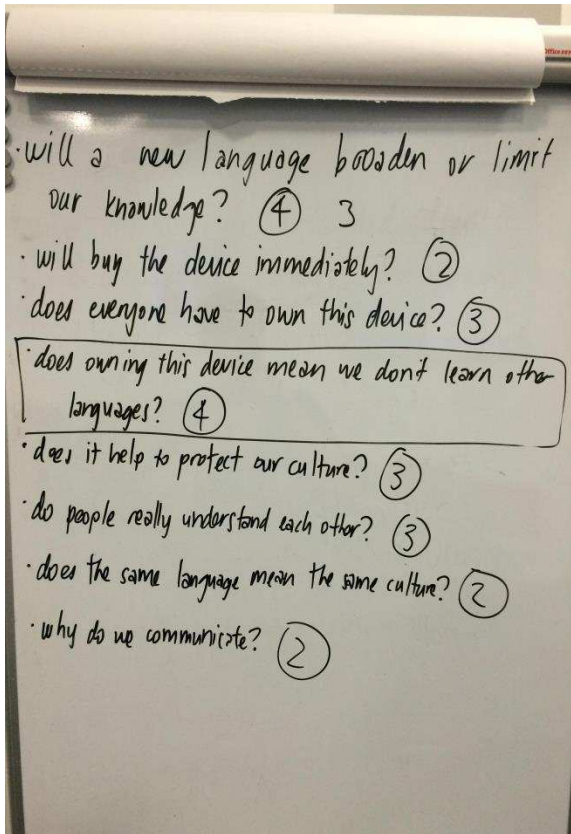 · will a new language broaden or limit
our knowledge? ④ 3
· will buy the device immediately? ②
· does everyone have to own this device? ③
· does owning this device mean we don't learn other
languages? ④
· does it help to protect our culture? ③
· do people really understand each other? ③
· does the same language mean the same culture? ②
· why do we communicate? ②